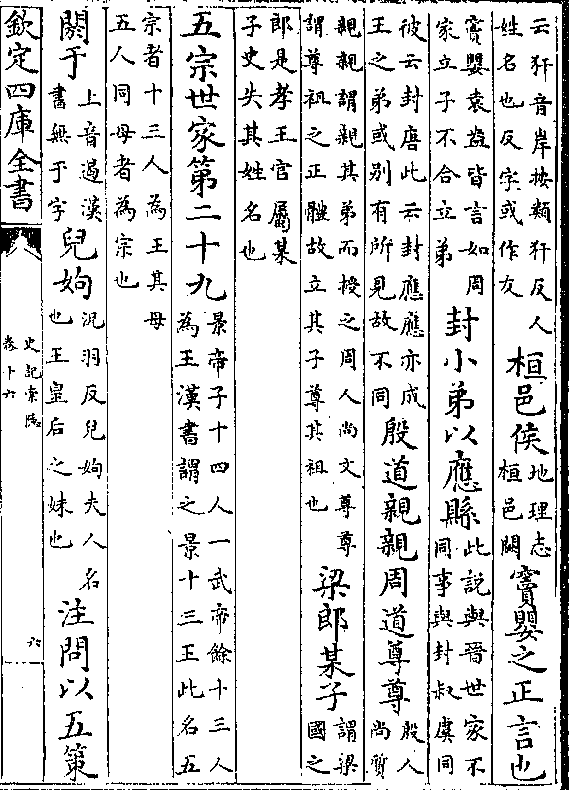 云犴音岸按類犴反人姓名也反字或作友桓邑侯地理志桓邑闕竇嬰之正言也
竇嬰袁盎皆言如周家立子不合立弟封小弟以應縣此說與晉世家不同事與封叔虞同
彼云封唐此云封應應亦成王之弟或别有所見故不同殷道親親周道尊尊殷人尚質
親親謂親其弟而授之周人尚文尊尊謂尊祖之正體故立其子尊其祖也梁郎某子謂梁國之
郎是孝王官屬某子史失其姓名也
五宗世家第二十九景帝子十四人一武帝餘十三人為王漢書謂之景十三王此名五
宗者十三人為王其母五人同母者為宗也
閼于上音遏漢書無于字兒姁況羽反兒姁夫人名也王皇后之妹也注問以五策
欽定四庫全書 史記索隱卷十六 六